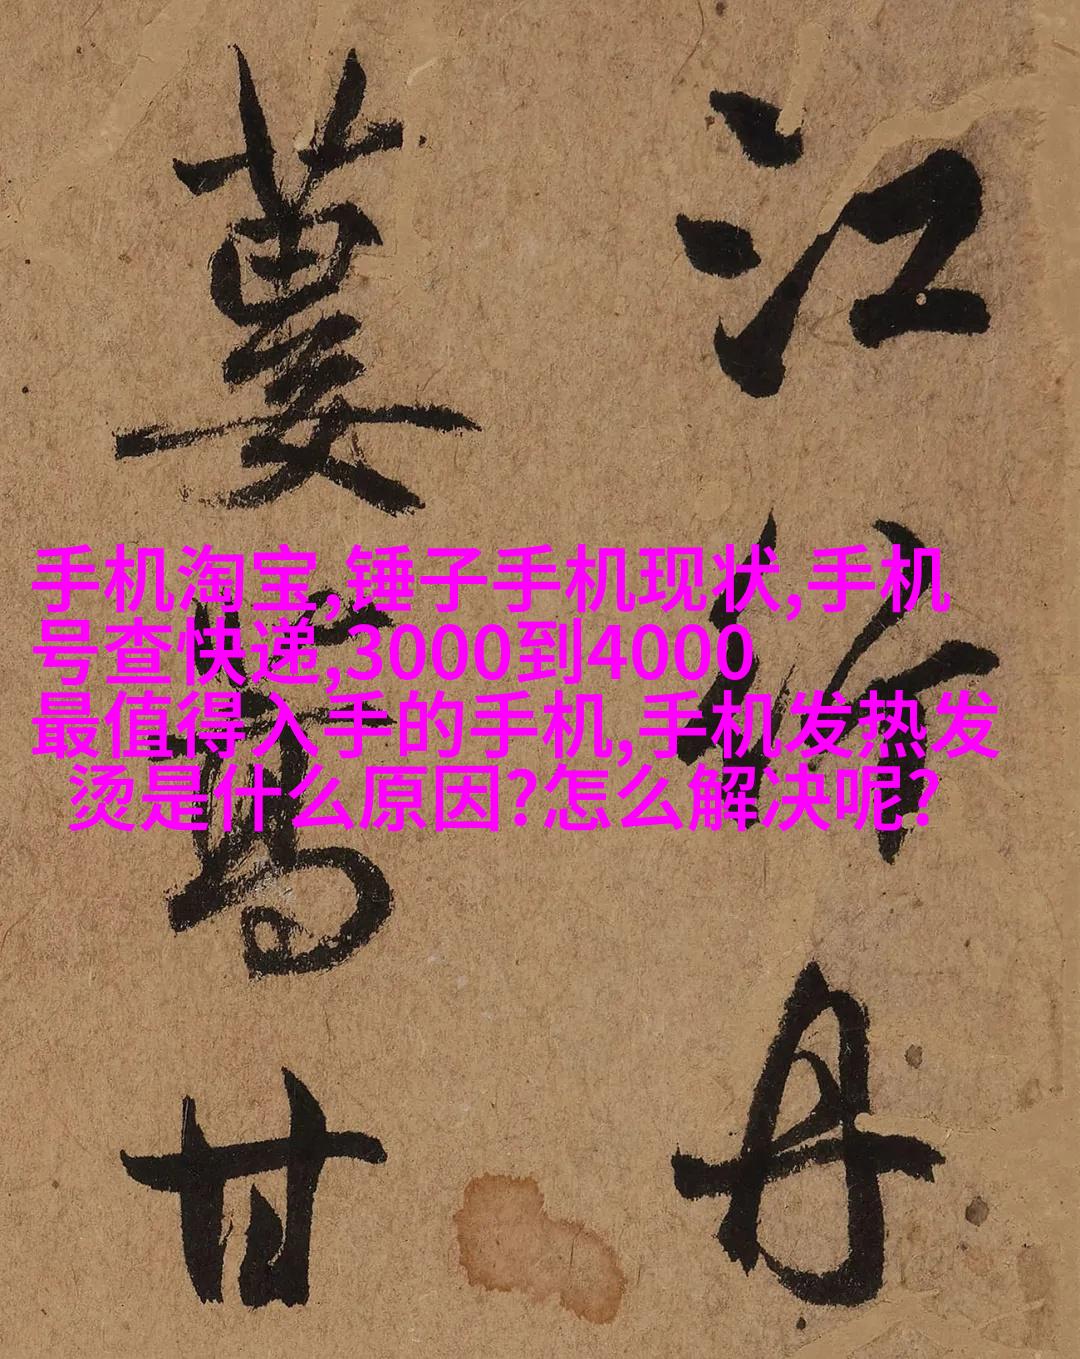 手机淘宝,锤子手机现状,手机
号查快递,3000到4000
最值得入手的手机,手机发热发
烫是什么原因?怎么解决呢?
江丹
蔞蒿甘